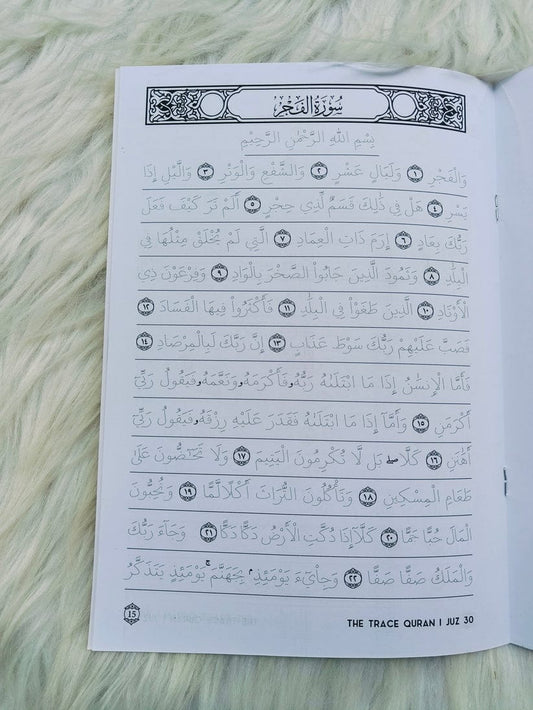 سُورَةُ الفَجْرِ
بِسْمِ اللَّهِ الرَّحْمَٰنِ الرَّحِيمِ
وَالْفَجْرِ ١ وَلَيَالٍ عَشْرٍ ٢ وَالشَّفْعِ وَالْوَتْرِ ٣ وَاللَّيْلِ إِذَا
يَسْرِ ٤ هَلْ فِي ذَٰلِكَ قَسَمٌ لِّذِي حِجْرٍ ٥ أَلَمْ تَرَ كَيْفَ فَعَلَ
رَبُّكَ بِعَادٍ ٦ إِرَمَ ذَاتِ الْعِمَادِ ٧ الَّتِي لَمْ يُخْلَقْ مِثْلُهَا فِي
الْبِلَٰدِ ٨ وَثَمُودَ الَّذِينَ جَابُوا۟ الصَّخْرَ بِالْوَادِ ٩ وَفِرْعَوْنَ ذِي
الْأَوْتَادِ ١٠ الَّذِينَ طَغَوْا۟ فِي الْبِلَٰدِ ١١ فَأَكْثَرُوا۟ فِيهَا الْفَسَادَ ١٢
فَصَبَّ عَلَيْهِمْ رَبُّكَ سَوْطَ عَذَابٍ ١٣ إِنَّ رَبَّكَ لَبِالْمِرْصَادِ ١٤
فَأَمَّا الْإِنسَٰنُ إِذَا مَا ابْتَلَىٰهُ رَبُّهُۥ فَأَكْرَمَهُۥ وَنَعَّمَهُۥ فَيَقُولُ رَبِّيٓ
أَكْرَمَنِ ١٥ وَأَمَّآ إِذَا مَا ابْتَلَىٰهُ فَقَدَرَ عَلَيْهِ رِزْقَهُۥ فَيَقُولُ رَبِّيٓ
أَهَٰنَنِ ١٦ كَلَّا ۖ بَل لَّا تُكْرِمُونَ الْيَتِيمَ ١٧ وَلَا تَحَٰٓضُّونَ عَلَىٰ
طَعَامِ الْمِسْكِينِ ١٨ وَتَأْكُلُونَ التُّرَاثَ أَكْلًا لَّمًّا ١٩ وَتُحِبُّونَ
الْمَالَ حُبًّا جَمًّا ٢٠ كَلَّآ إِذَا دُكَّتِ الْأَرْضُ دَكًّا دَكًّا ٢١ وَجَآءَ رَبُّكَ
وَالْمَلَكُ صَفًّا صَفًّا ٢٢ وَجِا۟يٓءَ يَوْمَئِذٍۭ بِجَهَنَّمَ ۚ يَوْمَئِذٍ يَتَذَكَّرُ
15
THE TRACE QURAN | JUZ 30